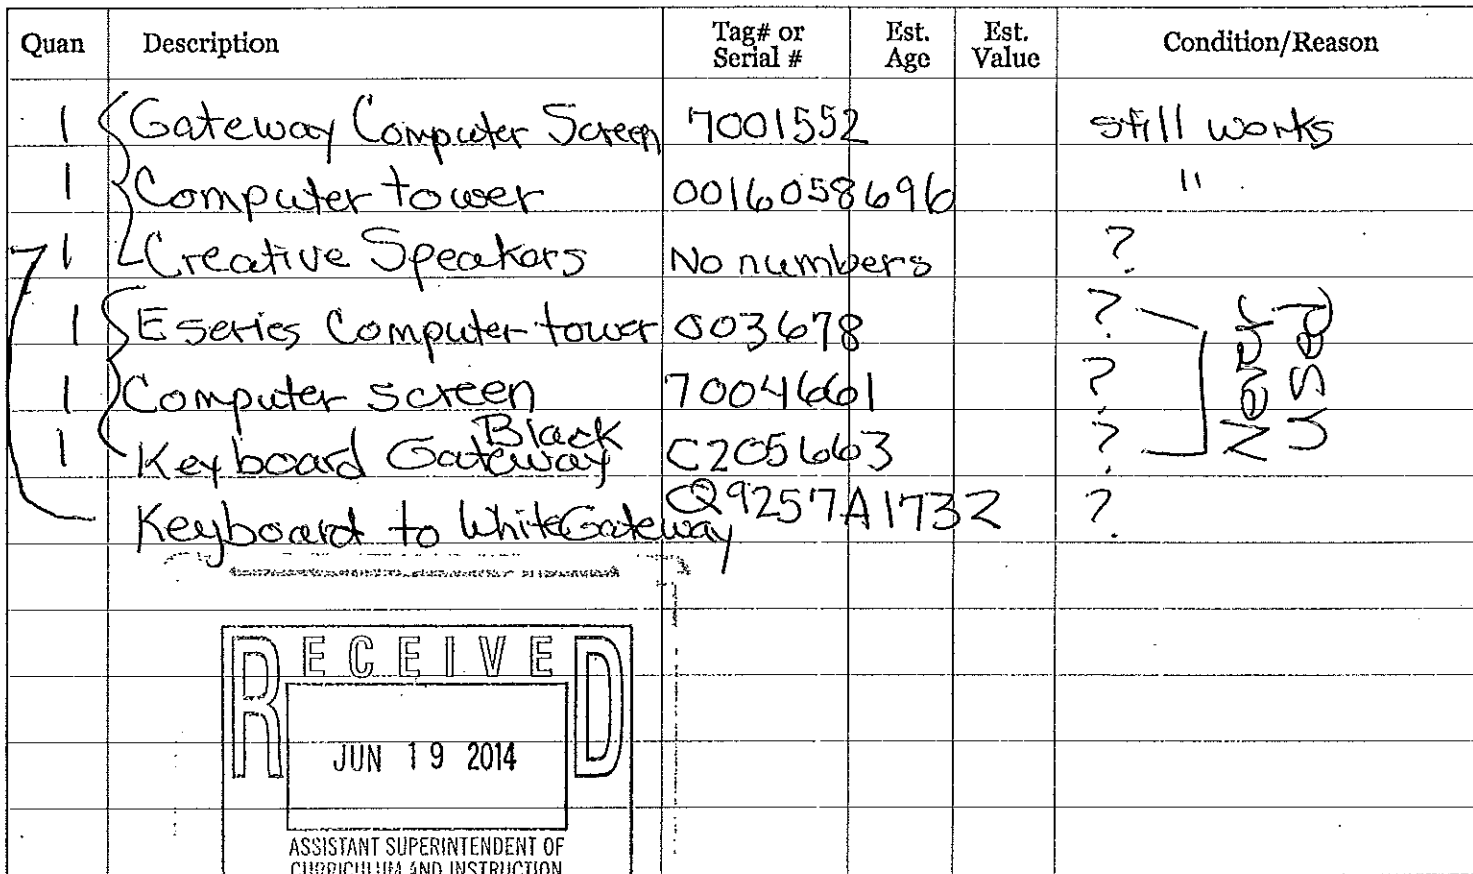 Quan Description Tag# or Serial # Est. Age Est. Value Condition/Reason
1 Gateway Computer Screen 7001552 still works
1 Computer tower 0016058696 "
1 Creative Speakers No numbers ?
1 E series Computer tower 003678 ?
1 Computer screen 7004661 ?
1 Keyboard Black Gateway C205663 ?
Never Used
Keyboard to White Gateway Q9257A1732 ?
RECEIVED
JUN 19 2014
ASSISTANT SUPERINTENDENT OF
CURRICULUM AND INSTRUCTION